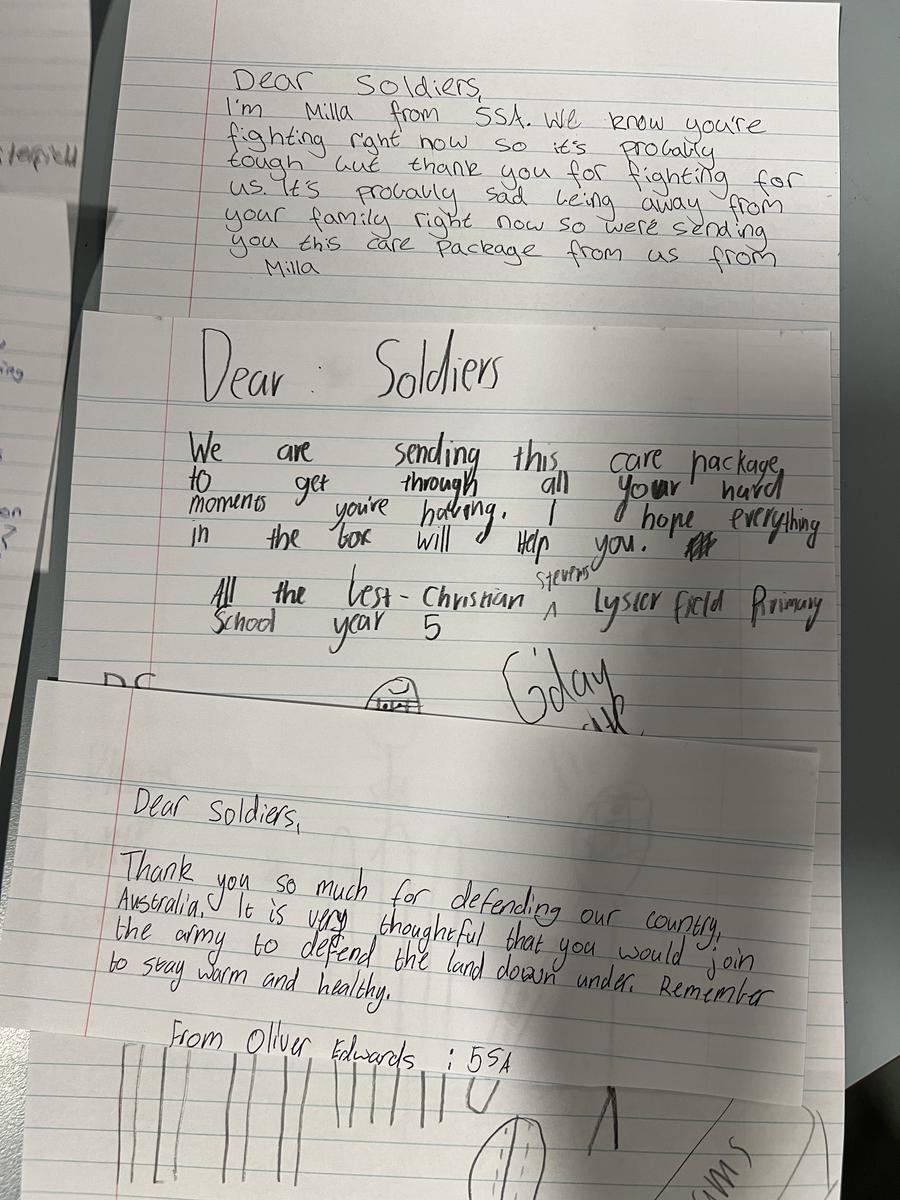 Dear Soldiers,
I'm Milla from 5SA. We know you're
fighting right now so it's probably
tough but thank you for fighting for
us. It's probably sad being away from
your family right now so we're sending
you this care package from us from
Milla
Dear : Soldiers
We are sending this care package
to get through all your hard
moments you're having. I hope everything
in the box will Help you.
All the best - Christian Stevens Lyster field Primary
School year 5
G'day
Dear Soldiers,
Thank you so much for defending our country,
Australia. It is very thoughtful that you would join
the army to defend the land down under. Remember
to stay warm and healthy.
From Oliver Edwards : 5SA